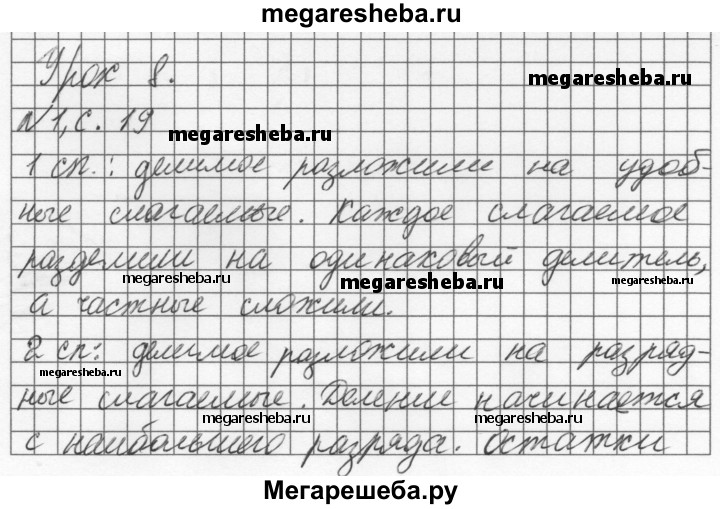 megaresheba.ru
Урок 8.
megaresheba.ru
№1, с. 19
megaresheba.ru
1 сп.: делимое разложили на удоб-
ные слагаемые. Каждое слагаемое
разделили на одинаковый делитель,
megaresheba.ru megaresheba.ru megaresheba.ru
а частные сложили.
2 сп: делимое разложили на разряд-
megaresheba.ru megaresheba.ru
ные слагаемые. Деление начинается
megaresheba.ru megaresheba.ru
с наибольшего разряда. Остатки
Мегарешеба.ру